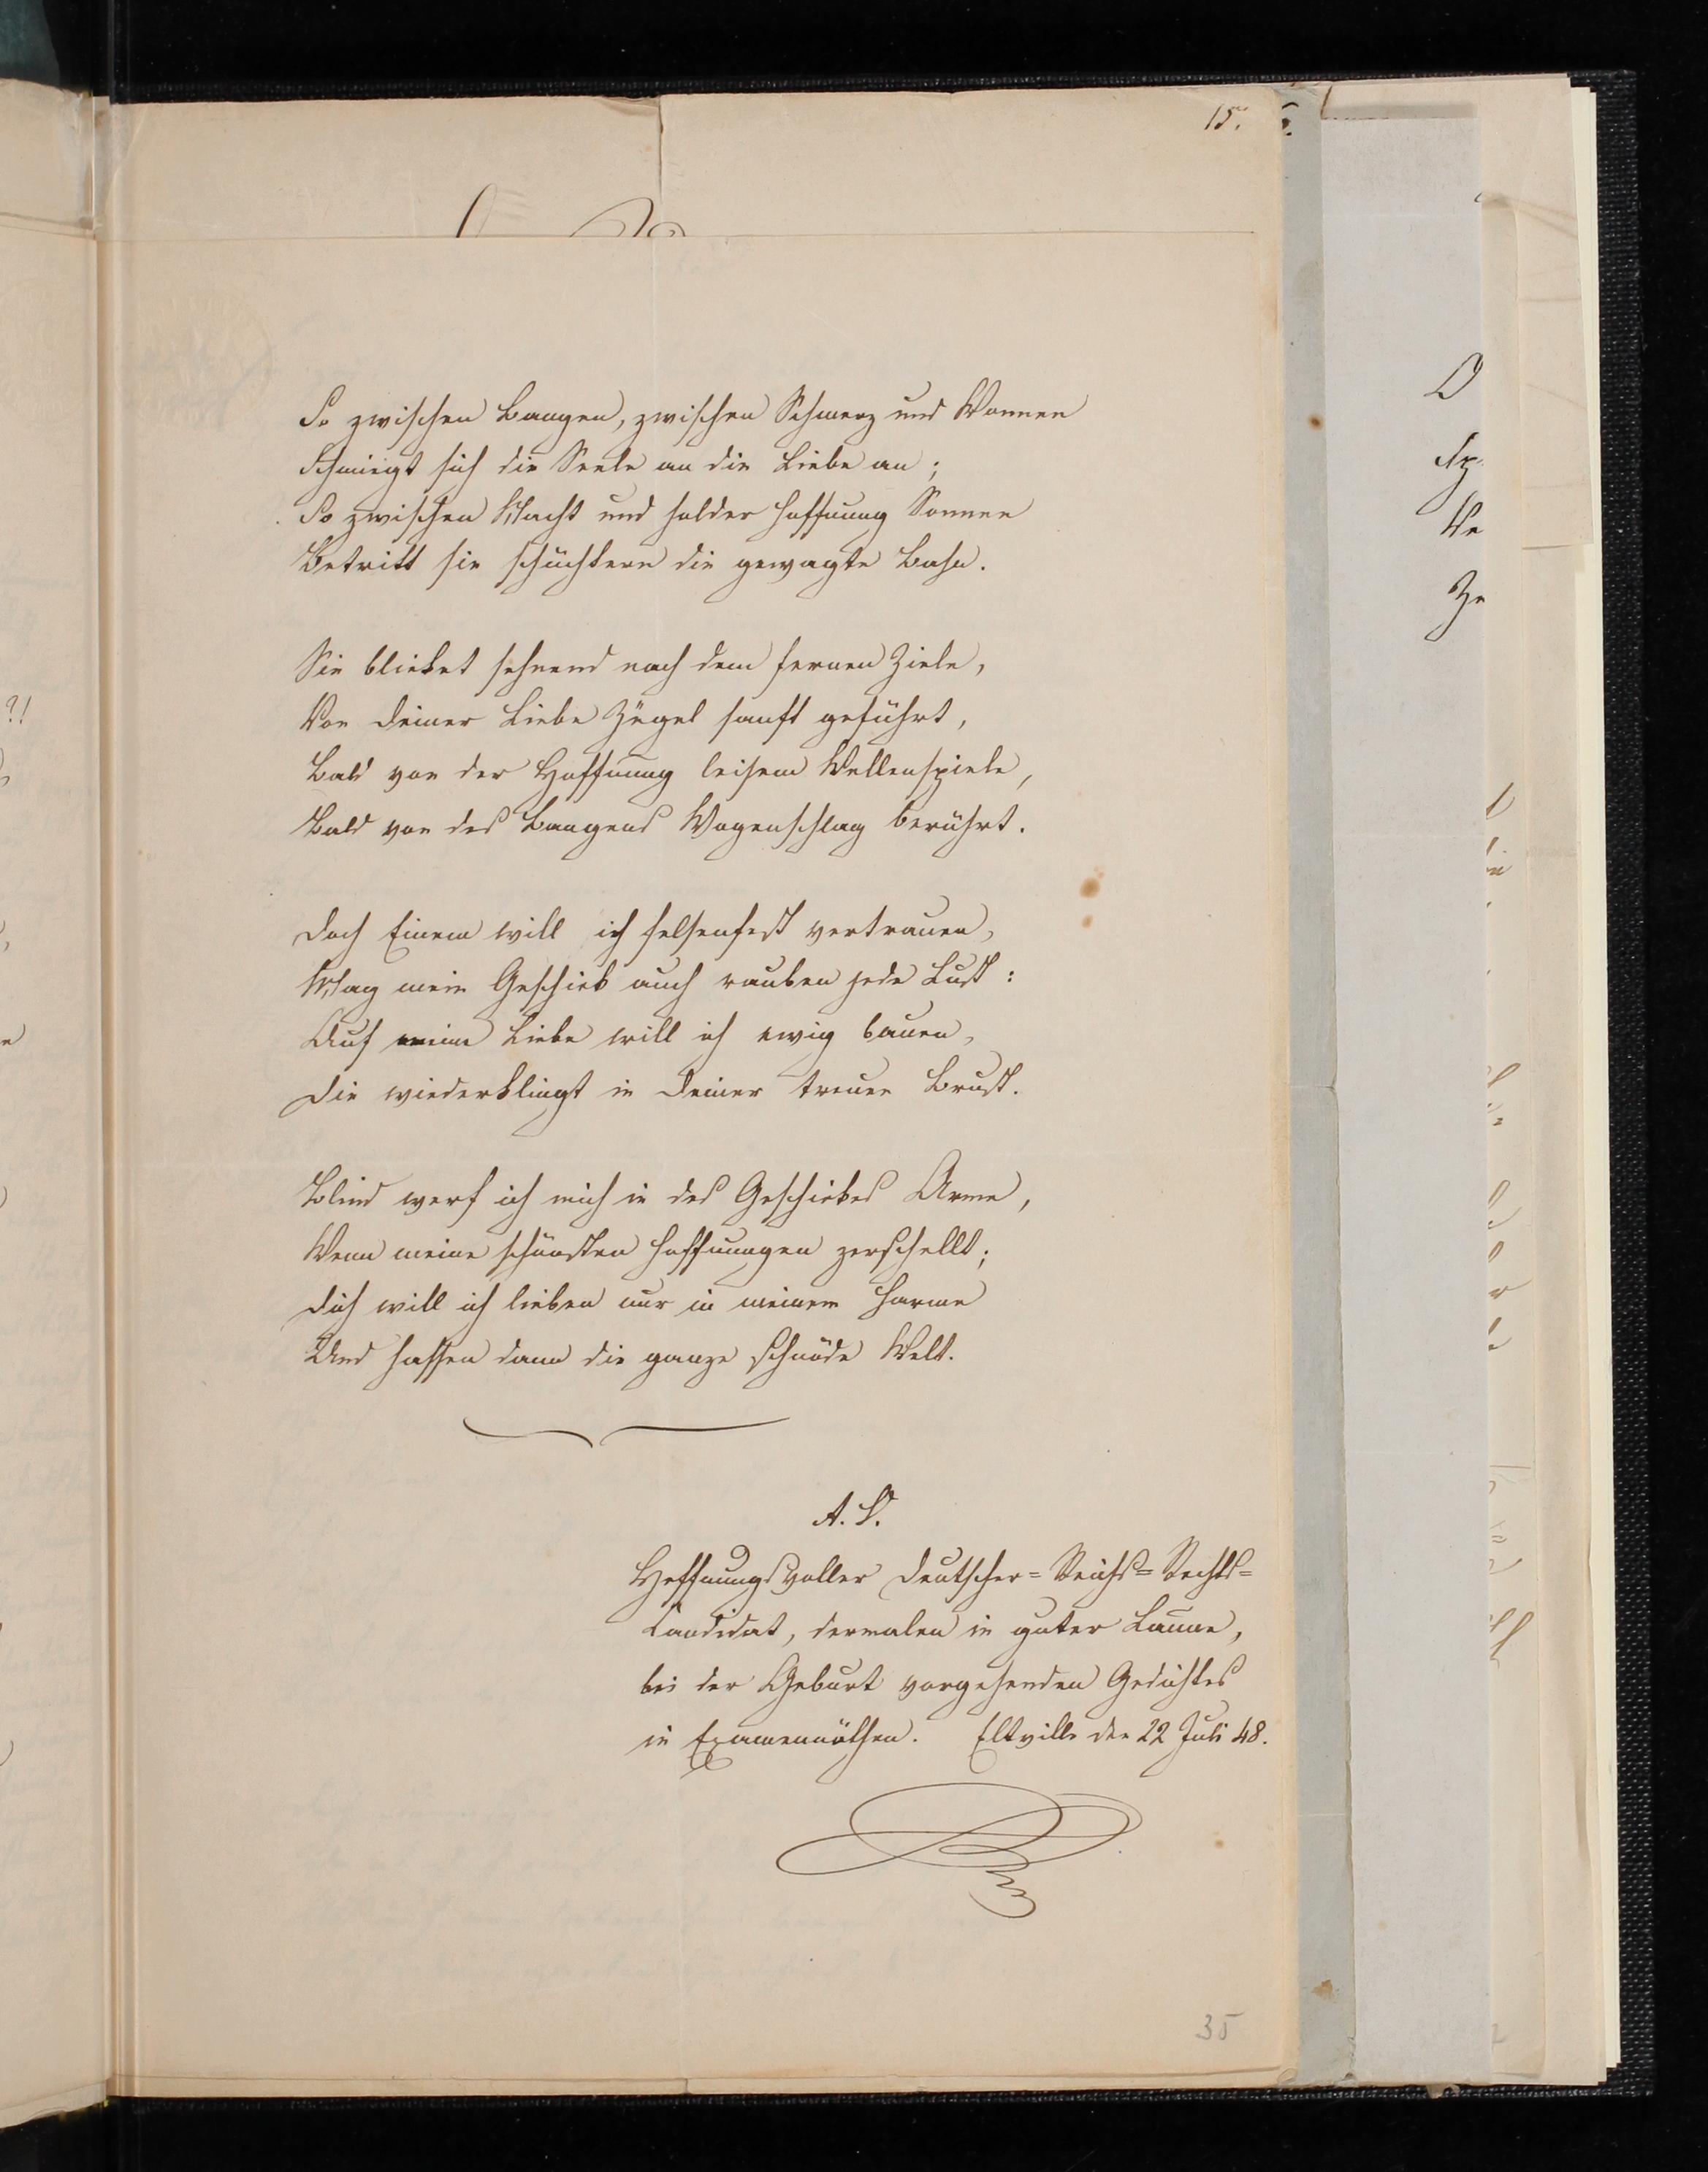 15.
So zwischen Bangen, zwischen Schmerz und Wonnen
Schmiegt sich die Seele an die Liebe an;
So zwischen Nacht und holder Hoffnung Sonnen
Betritt sie schüchtern die gewagte Bahn.
Sie blicket sehnend nach dem fernen Ziele,
Von Deiner Liebe Zügel sanft geführt,
Bald von der Hoffnung leisem Wellenspiele,
Bald von des Bangens Wogenschlag berührt.
Doch Einem will ich felsenfest vertrauen,
Mag mein Geschick auch rauben jede Lust:
Auf meine Liebe will ich ewig bauen,
Die wiederklingt in Deiner treuen Brust.
Blind werf ich mich in des Geschickes Arme,
Wenn meine schönsten Hoffnungen zerschellt;
Dich will ich lieben nur in meinem Harme
Und hassen dann die ganze schnöde Welt.
A. S.
Hoffnungsvoller Deutscher=Reichs=Rechts=
Candidat, dermalen in guter Laune,
bei der Geburt vorgehenden Gedichtes
in Examennöthen. Eltville den 22 Juli 48.
35
?!